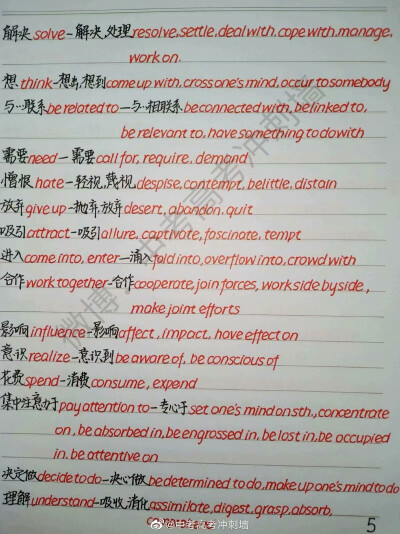 解决 solve-解决,处理 resolve, settle, deal with, cope with, manage,
work on.
想 think-想出,想到 come up with, cross one's mind, occur to somebody
与…联系 be related to-与…相联系 be connected with, be linked to,
be relevant to, have something to do with
需要 need-需要 call for, require, demand
憎恨 hate-轻视,蔑视 despise, contempt, belittle, distain
放弃 give up-抛弃,放弃 desert, abandon, quit
吸引 attract-吸引 allure, captivate, fascinate, tempt
进入 come into, enter-涌入 fold into, overflow into, crowd with
合作 work together-合作 cooperate, join forces, work side by side,
make joint efforts
影响 influence-影响 affect, impact, have effect on
意识 realize-意识到 be aware of, be conscious of
花费 spend-消费 consume, expend
集中注意力于 pay attention to-专心于 set one's mind on sth., concentrate
on, be absorbed in, be engrossed in, be lost in, be occupied
in, be attentive on
决定做 decide to do-决心做 be determined to do, make up one's mind to do
理解 understand-吸收,消化 assimilate, digest, grasp, absorb,
comprehend
@中考高考冲刺墙
5
微博:中考高考冲刺墙